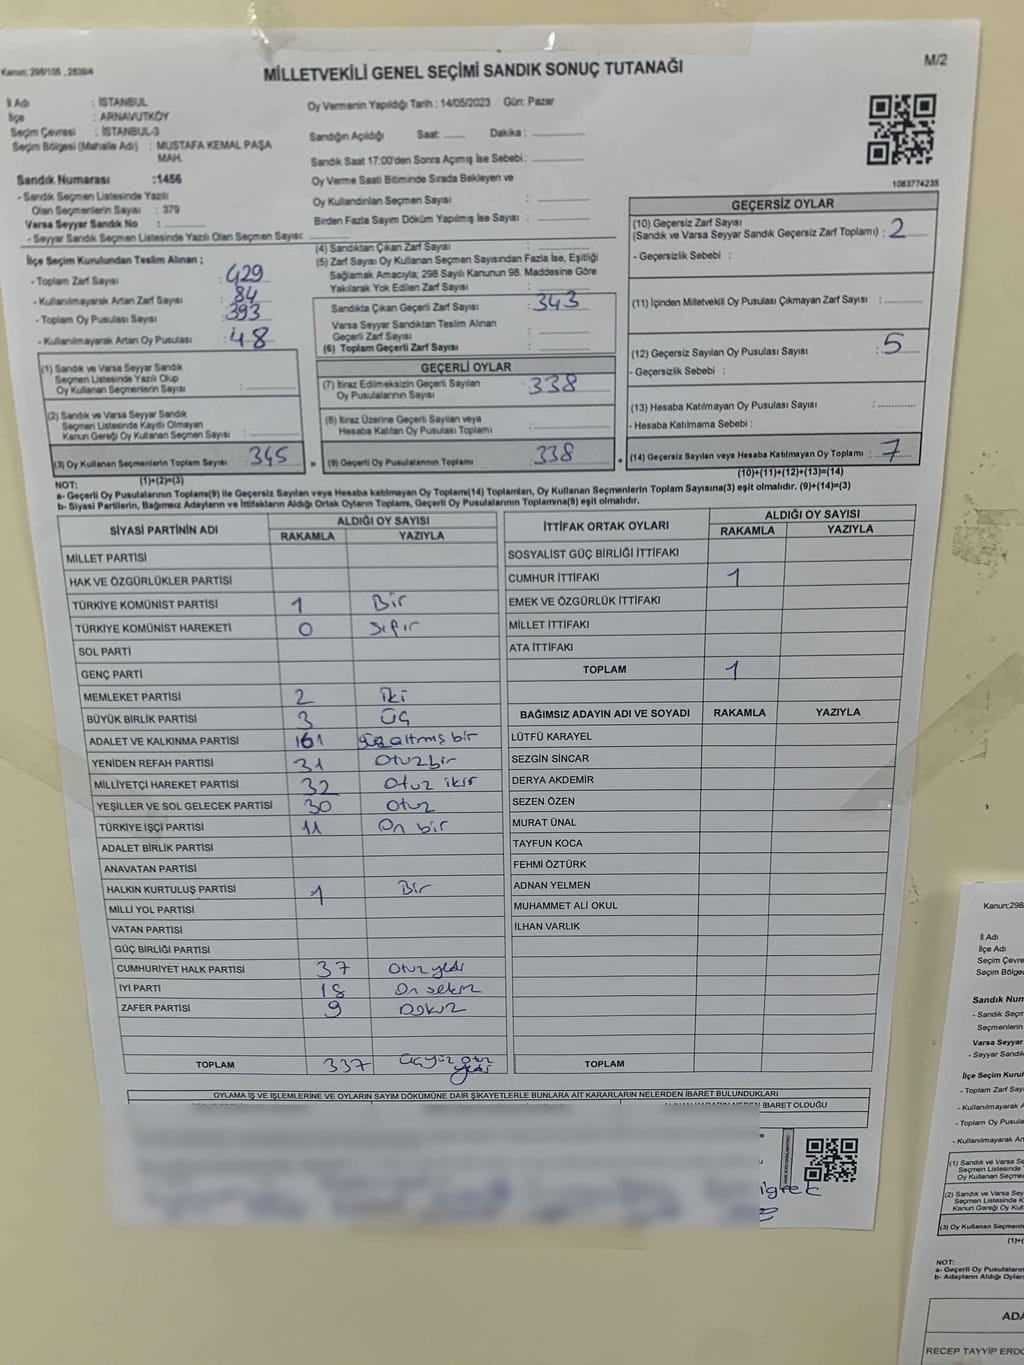 Kanun; 298/105 , 2839/4
MİLLETVEKİLİ GENEL SEÇİMİ SANDIK SONUÇ TUTANAĞI
M/2
İl Adı : İSTANBUL
İlçe : ARNAVUTKÖY
Seçim Çevresi : İSTANBUL-3
Seçim Bölgesi (Mahalle Adı) : MUSTAFA KEMAL PAŞA
MAH.
Sandık Numarası :1456
- Sandık Seçmen Listesinde Yazılı
Olan Seçmenlerin Sayısı : 379
Varsa Seyyar Sandık No :
- Seyyar Sandık Seçmen Listesinde Yazılı Olan Seçmen Sayısı:
İlçe Seçim Kurulundan Teslim Alınan ;
- Toplam Zarf Sayısı : 429
- Kullanılmayarak Artan Zarf Sayısı : 84
- Toplam Oy Pusulası Sayısı : 393
- Kullanılmayarak Artan Oy Pusulası : 48
(1) Sandık ve Varsa Seyyar Sandık
Seçmen Listesinde Yazılı Olup
Oy Kullanan Seçmenlerin Sayısı :
(2) Sandık ve Varsa Seyyar Sandık
Seçmen Listesinde Kayıtlı Olmayan
Kanun Gereği Oy Kullanan Seçmen Sayısı :
(3) Oy Kullanan Seçmenlerin Toplam Sayısı 345
(1)+(2)=(3)
Oy Vermenin Yapıldığı Tarih : 14/05/2023 Gün: Pazar
Sandığın Açıldığı Saat: ...... Dakika : ..............
Sandık Saat 17:00'den Sonra Açımış İse Sebebi: ..............
Oy Verme Saati Bitiminde Sırada Bekleyen ve
Oy Kullandırılan Seçmen Sayısı :
Birden Fazla Sayım Döküm Yapılmış İse Sayısı :
(4) Sandıktan Çıkan Zarf Sayısı :
(5) Zarf Sayısı Oy Kullanan Seçmen Sayısından Fazla İse, Eşitliği
Sağlamak Amacıyla; 298 Sayılı Kanunun 98. Maddesine Göre
Yakılarak Yok Edilen Zarf Sayısı :
Sandıkta Çıkan Geçerli Zarf Sayısı : 343
Varsa Seyyar Sandıktan Teslim Alınan
Geçerli Zarf Sayısı :
(6) Toplam Geçerli Zarf Sayısı :
GEÇERLİ OYLAR
(7) İtiraz Edilmeksizin Geçerli Sayılan
Oy Pusulalarının Sayısı : 338
(8) İtiraz Üzerine Geçerli Sayılan veya
Hesaba Katılan Oy Pusulası Toplamı :
= (9) Geçerli Oy Pusulalarının Toplamı 338
1083774235
GEÇERSİZ OYLAR
(10) Geçersiz Zarf Sayısı
(Sandık ve Varsa Seyyar Sandık Geçersiz Zarf Toplamı) : 2
- Geçersizlik Sebebi :
(11) İçinden Milletvekili Oy Pusulası Çıkmayan Zarf Sayısı :
(12) Geçersiz Sayılan Oy Pusulası Sayısı : 5
- Geçersizlik Sebebi :
(13) Hesaba Katılmayan Oy Pusulası Sayısı :
- Hesaba Katılmama Sebebi :
+ (14) Geçersiz Sayılan veya Hesaba Katılmayan Oy Toplamı : 7
(10)+(11)+(12)+(13)=(14)
NOT:
a- Geçerli Oy Pusulalarının Toplamı(9) ile Geçersiz Sayılan veya Hesaba katılmayan Oy Toplamı(14) Toplamları, Oy Kullanan Seçmenlerin Toplam Sayısına(3) eşit olmalıdır. (9)+(14)=(3)
b- Siyasi Partilerin, Bağımsız Adayların ve İttifakların Aldığı Ortak Oyların Toplamı, Geçerli Oy Pusulalarının Toplamına(9) eşit olmalıdır.
SİYASİ PARTİNİN ADI ALDIĞI OY SAYISI
RAKAMLA YAZIYLA
MİLLET PARTİSİ
HAK VE ÖZGÜRLÜKLER PARTİSİ
TÜRKİYE KOMÜNİST PARTİSİ 1 Bir
TÜRKİYE KOMÜNİST HAREKETİ 0 Sıfır
SOL PARTİ
GENÇ PARTİ
MEMLEKET PARTİSİ 2 İki
BÜYÜK BİRLİK PARTİSİ 3 Üç
ADALET VE KALKINMA PARTİSİ 161 yüz altmış bir
YENİDEN REFAH PARTİSİ 31 Otuz bir
MİLLİYETÇİ HAREKET PARTİSİ 32 Otuz iki
YEŞİLLER VE SOL GELECEK PARTİSİ 30 Otuz
TÜRKİYE İŞÇİ PARTİSİ 11 On bir
ADALET BİRLİK PARTİSİ
ANAVATAN PARTİSİ
HALKIN KURTULUŞ PARTİSİ 1 Bir
MİLLİ YOL PARTİSİ
VATAN PARTİSİ
GÜÇ BİRLİĞİ PARTİSİ
CUMHURİYET HALK PARTİSİ 37 Otuz yedi
İYİ PARTİ 18 On sekiz
ZAFER PARTİSİ 9 Dokuz
TOPLAM 337 Üçyüz otuz yedi
İTTİFAK ORTAK OYLARI ALDIĞI OY SAYISI
RAKAMLA YAZIYLA
SOSYALİST GÜÇ BİRLİĞİ İTTİFAKI
CUMHUR İTTİFAKI 1
EMEK VE ÖZGÜRLÜK İTTİFAKI
MİLLET İTTİFAKI
ATA İTTİFAKI
TOPLAM 1
BAĞIMSIZ ADAYIN ADI VE SOYADI RAKAMLA YAZIYLA
LÜTFÜ KARAYEL
SEZGİN SİNCAR
DERYA AKDEMİR
SEZEN ÖZEN
MURAT ÜNAL
TAYFUN KOCA
FEHMİ ÖZTÜRK
ADNAN YELMEN
MUHAMMET ALİ OKUL
İLHAN VARLIK
TOPLAM
OYLAMA İŞ VE İŞLEMLERİNE VE OYLARIN SAYIM DÖKÜMÜNE DAİR ŞİKAYETLERLE BUNLARA AİT KARARLARIN NELERDEN İBARET BULUNDUKLARI
İBARET OLDUĞU
Kanun;298
İl Adı
İlçe Adı
Seçim Çevre
Seçim Bölges
Sandık Num
- Sandık Seçm
Seçmenlerin
Varsa Seyyar
- Seyyar Sandık
İlçe Seçim Kurul
- Toplam Zarf Say
- Kullanılmayarak
- Toplam Oy Pusula
- Kullanılmayarak Ar
(1) Sandık ve Varsa Se
Seçmen Listesinde
Oy Kullanan Seçme
(2) Sandık ve Varsa Sey
Seçmen Listesinde K
Kanun Gereği Oy Kul
(3) Oy Kullanan Seçmenle
(1)+(
NOT:
a- Geçerli Oy Pusulaların
b- Adayların Aldığı Oyların
ADA
RECEP TAYYİP ERDO